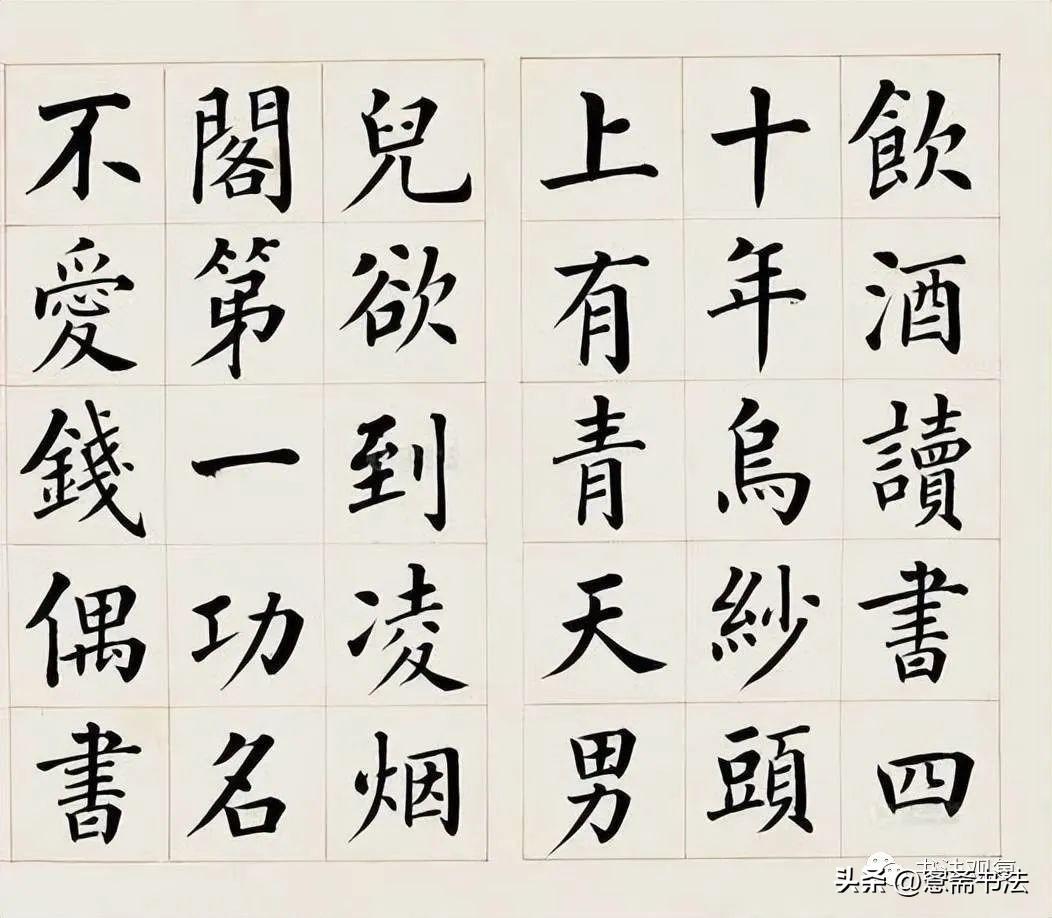 飲酒讀書四
十年烏紗頭
上有青天男
兒欲到凌烟
閣第一功名
不愛錢偶書
书法观复
头条 @愙斋书法